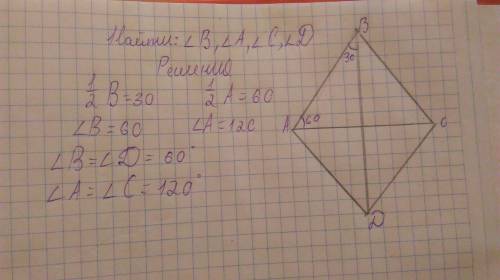 Найти: ∠B, ∠A, ∠C, ∠D
Решение
1/2 B = 30 1/2 A = 60
∠B = 60 ∠A = 120
∠B = ∠D = 60°
∠A = ∠C = 120°
B
30
A 60 C
D